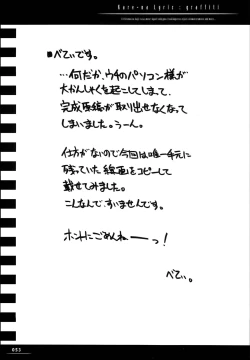 Kure-no Lyric : graffiti
■べてぃです。
…何だか、ウチのパソコン様が
大かんしゃくを起こしてしまって、
完成原稿が取り出せなくなって
しまいました。うーん。
仕方がないので今回は唯一手元に
残っていた線画をコピーして
載せてみました。
こんなんで、すいませんです。
ホントにごめんねーーっ！
べてぃ。
053